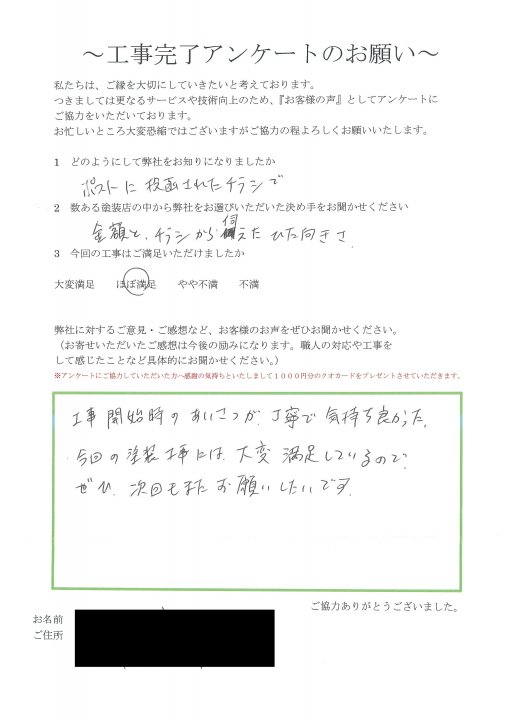 ～工事完了アンケートのお願い～
私たちは、ご縁を大切にしていきたいと考えております。
つきましては更なるサービスや技術向上のため、『お客様の声』としてアンケートに
ご協力をいただいております。
お忙しいところ大変恐縮ではございますがご協力の程よろしくお願いいたします。
1 どのようにして弊社をお知りになりましたか
ポストに投函されたチラシで
2 数ある塗装店の中から弊社をお選びいただいた決め手をお聞かせください
金額と、チラシから伺えたひた向きさ
3 今回の工事はご満足いただけましたか
大変満足 ほぼ満足 やや不満 不満
弊社に対するご意見・ご感想など、お客様のお声をぜひお聞かせください。
（お寄せいただいたご感想は今後の励みになります。職人の対応や工事を
して感じたことなど具体的にお聞かせください。）
※アンケートにご協力していただいた方へ感謝の気持ちといたしまして１０００円分のクオカードをプレゼントさせていただきます。
工事開始時のあいさつが、丁寧で気持ち良かった。
今回の塗装工事には、大変満足しているので、
ぜひ、次回もまたお願いしたいです。
ご協力ありがとうございました。
お名前
ご住所